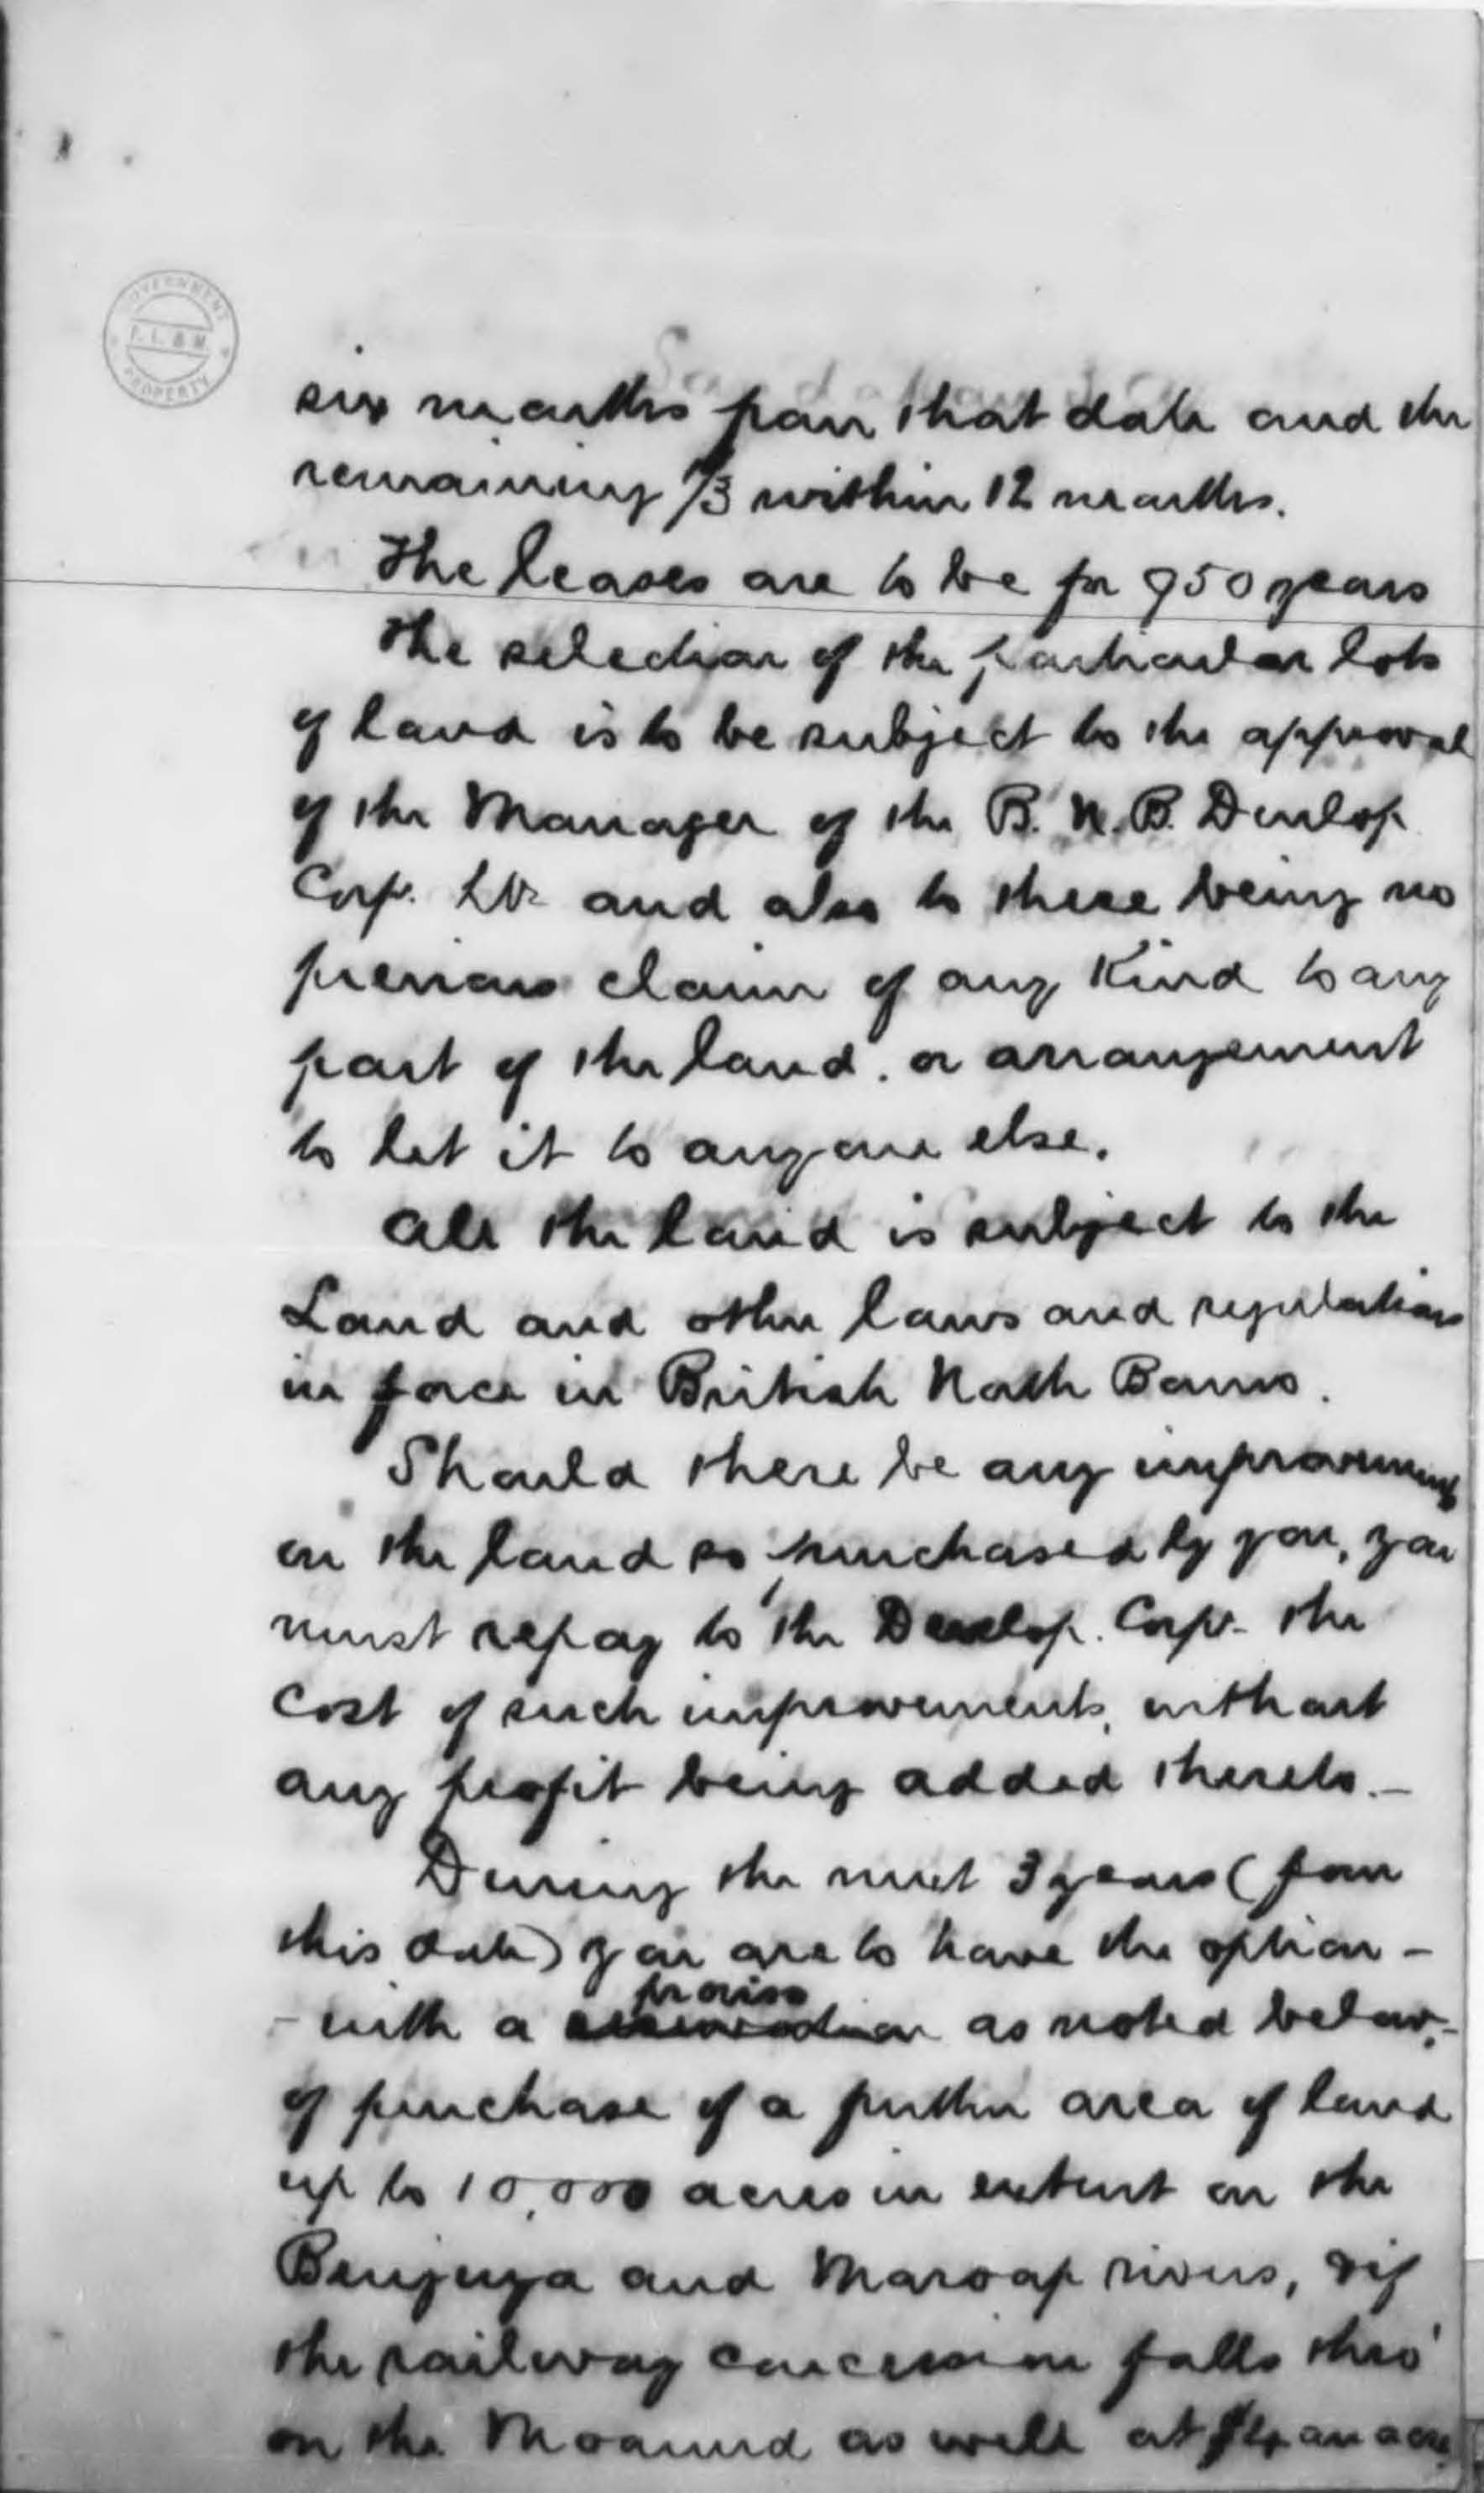 GOVERNMENT
PROPERTY
six months from that date and the
remaining 1/3 within 12 months.
The leases are to be for 950 years
The selection of the particular lots
of land is to be subject to the approval
of the Manager of the B.N.B. Devlop
Corp. Ld and also to there being no
previous claim of any kind to any
part of the land. or arrangement
to let it to anyone else.
All the land is subject to the
Land and other laws and regulations
in force in British North Borneo.
Should there be any improvements
on the land so purchased by you, you
must repay to the Develop. Corpn. the
cost of such improvements, without
any profit being added thereto.-
During the next 3 years (from
this date) you are to have the option -
proviso
- with a as noted below,-
of purchase of a further area of land
up to 10,000 acres in extent on the
and Maroap rivers, & if
the railway concession falls thro'
on the as well at $4 an acre